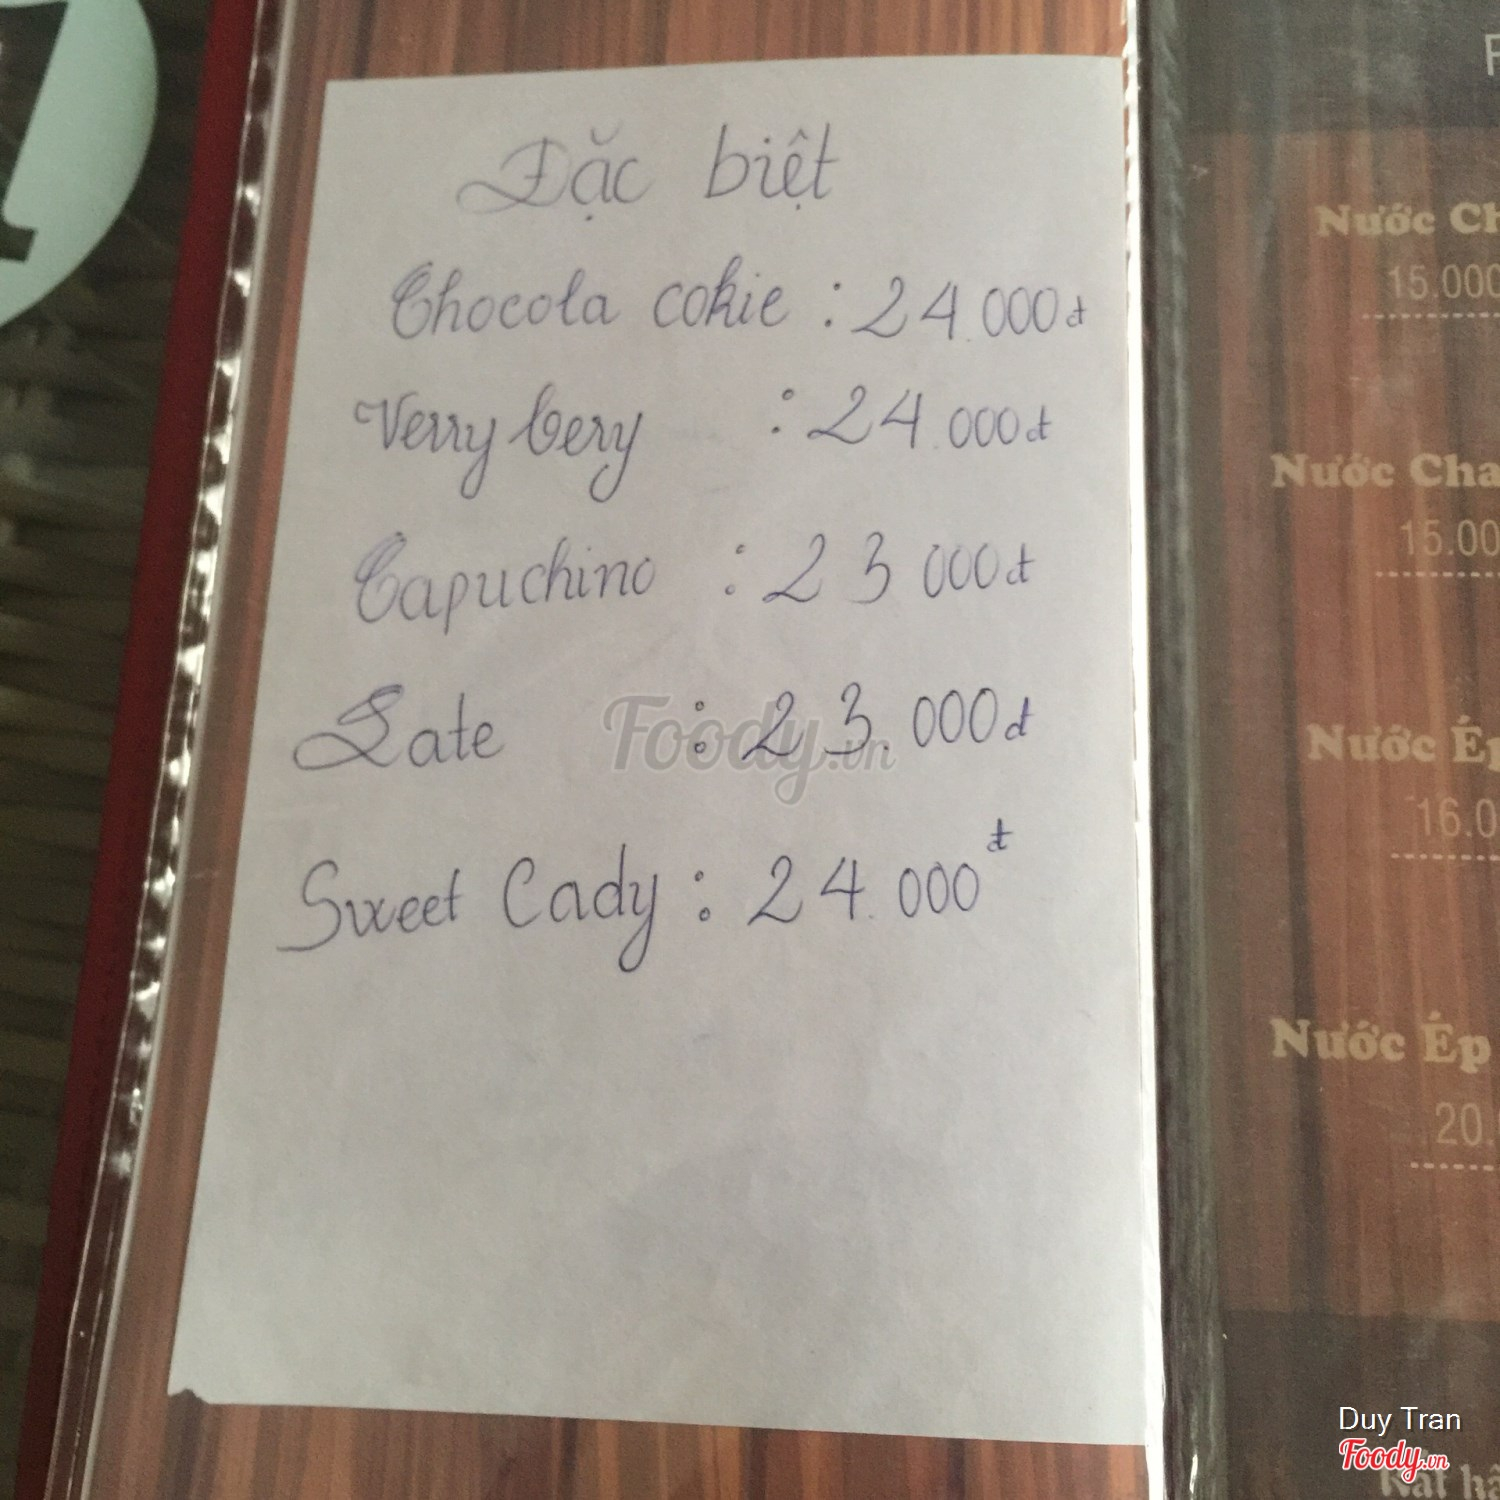 Đặc biệt
Chocola cokie : 24.000đ
Verry bery : 24.000đ
Capuchino : 23 000đ
Late : 23.000đ
Sweet Cady : 24.000đ
Foody.vn
Nước Ch
15.000
Nước Cha
15.00
Nước Ép
16.0
Nước Ép
20.
Duy Tran
Foody.vn